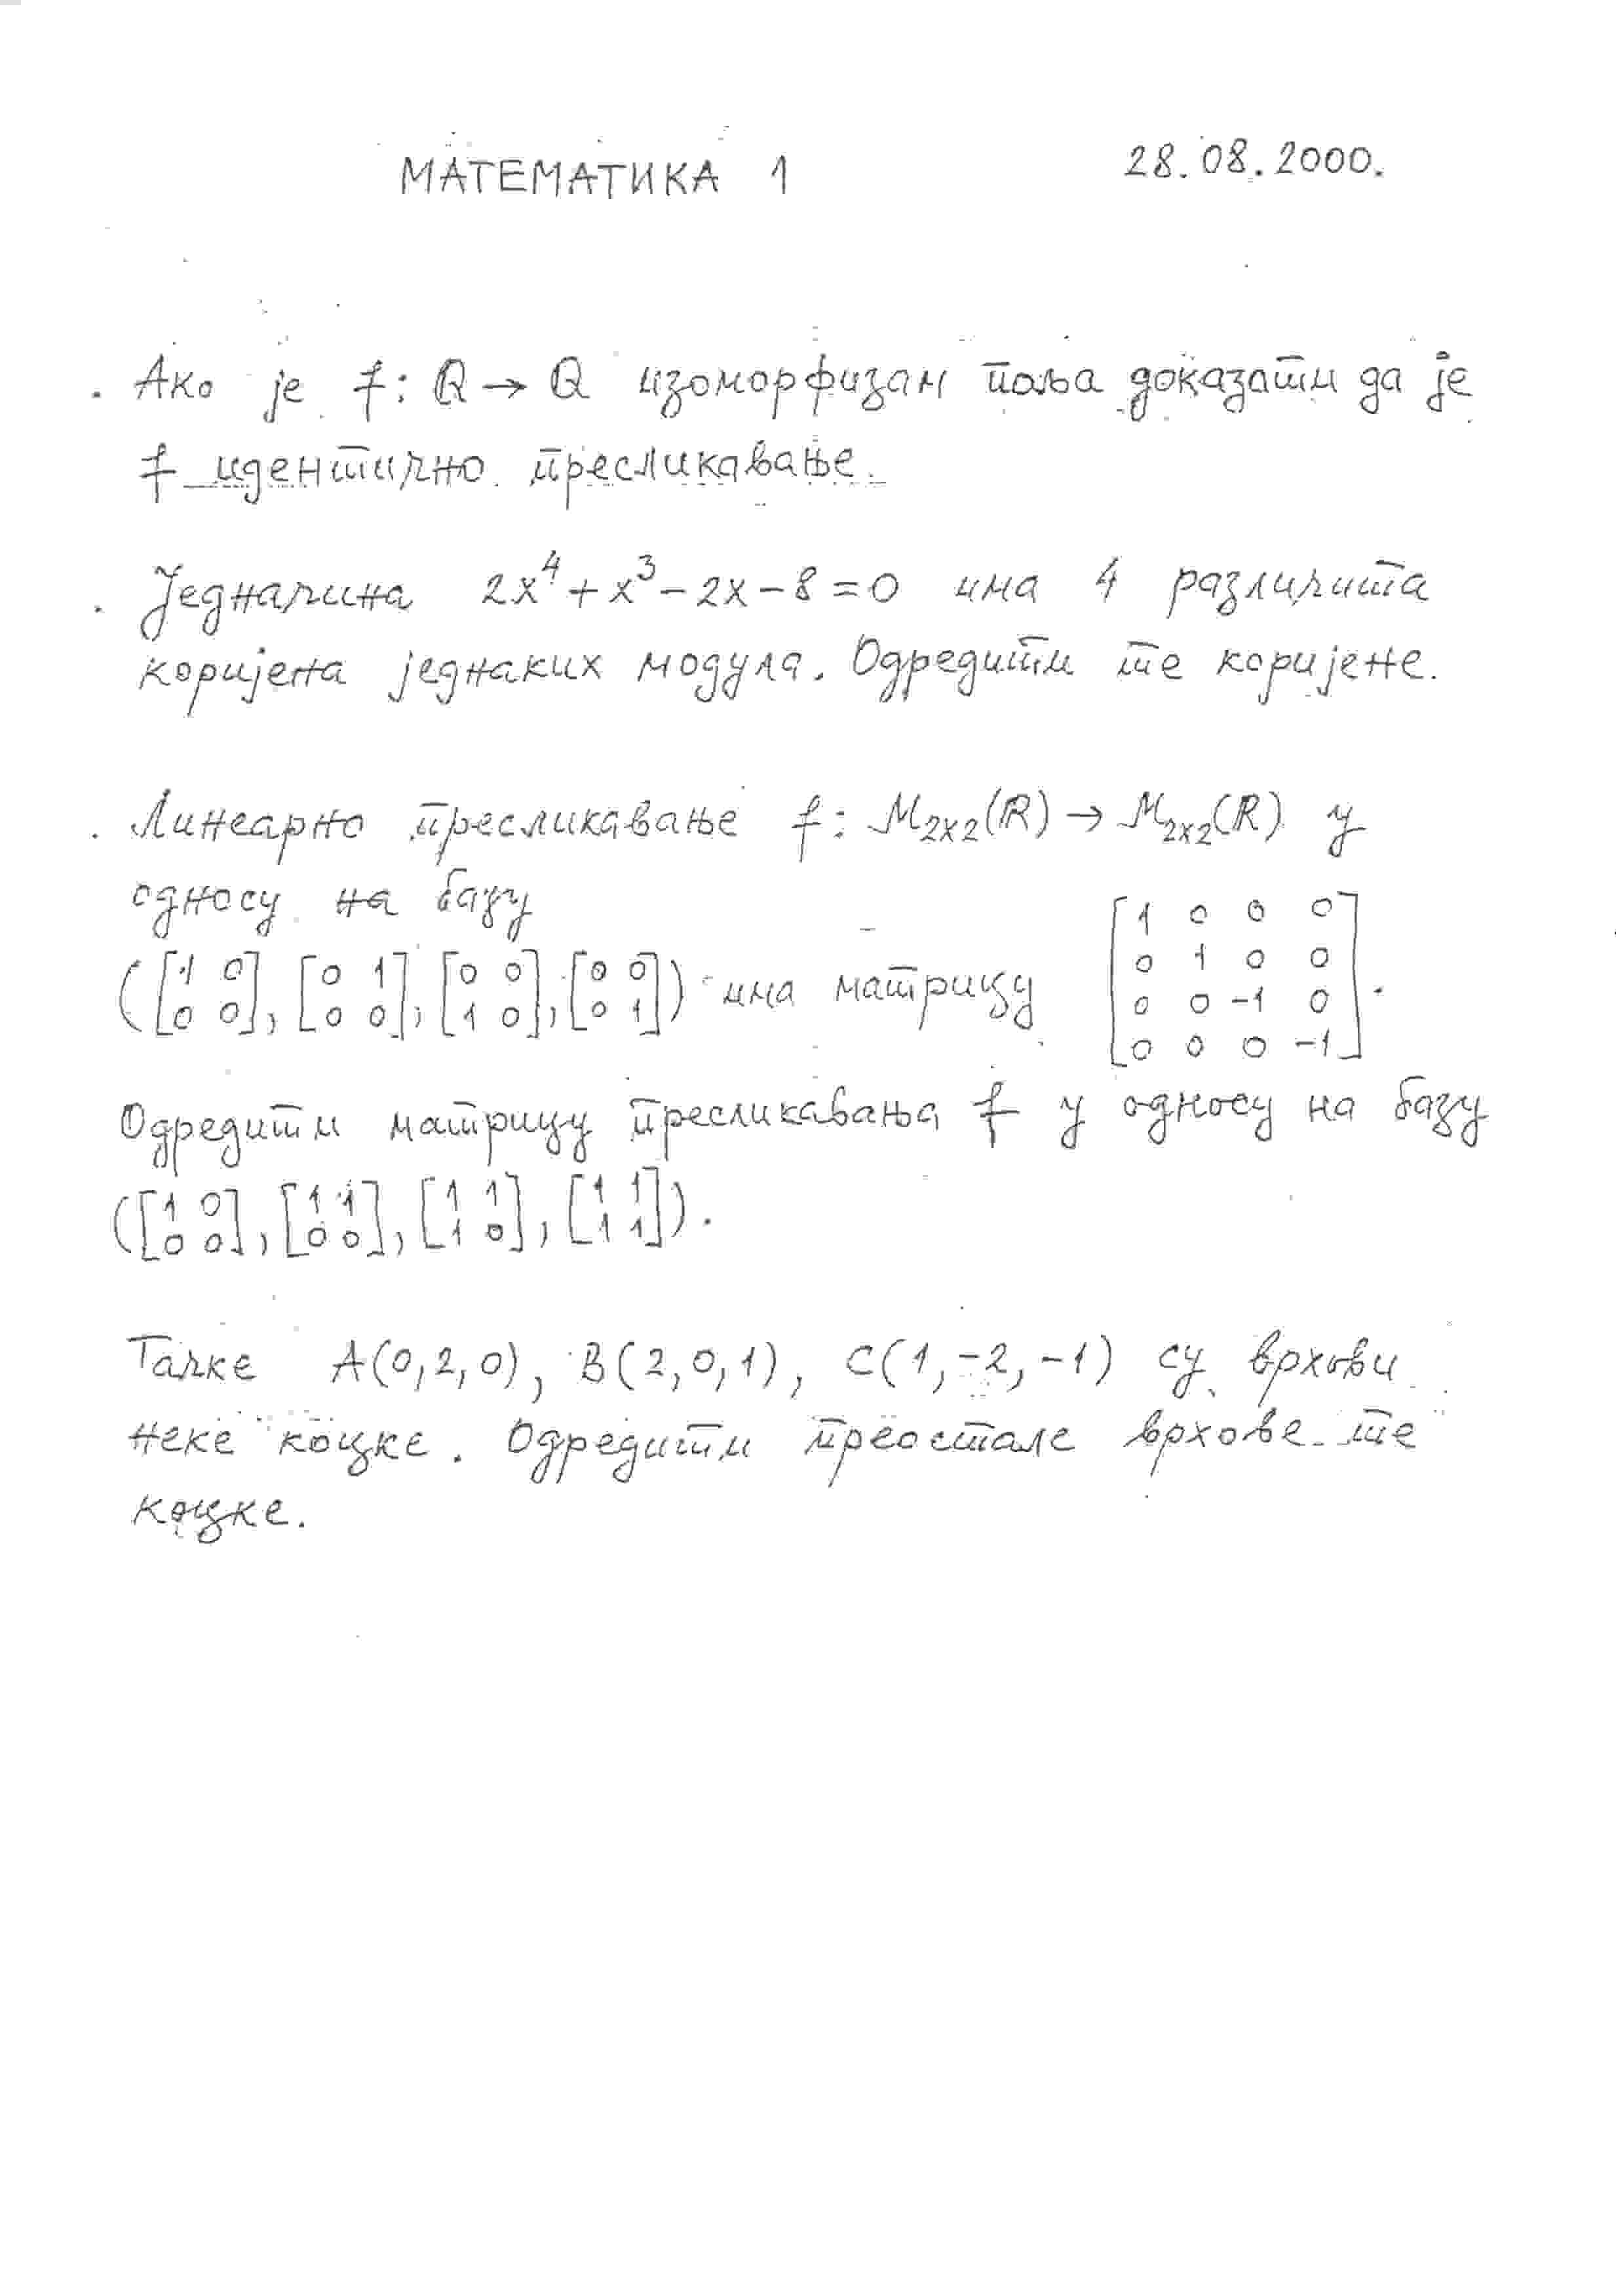 МАТЕМАТИКА 1 28.08.2000.
. Ако је f: Q → Q изоморфизам поља доказати да је
f идентично пресликавање.
. Једначина 2x⁴ + x³ - 2x - 8 = 0 има 4 различита
коријена једнаких модула. Одредити те коријене.
. Линеарно пресликавање f: M₂ₓ₂(ℝ) → M₂ₓ₂(ℝ) у
односу на базу
([1 0; 0 0], [0 1; 0 0], [0 0; 1 0], [0 0; 0 1]) има матрицу [1 0 0 0; 0 1 0 0; 0 0 -1 0; 0 0 0 -1].
Одредити матрицу пресликавања f у односу на базу
([1 0; 0 0], [1 1; 0 0], [1 1; 1 0], [1 1; 1 1]).
Тачке A(0,2,0), B(2,0,1), C(1,-2,-1) су врхови
неке коцке. Одредити преостале врхове те
коцке.